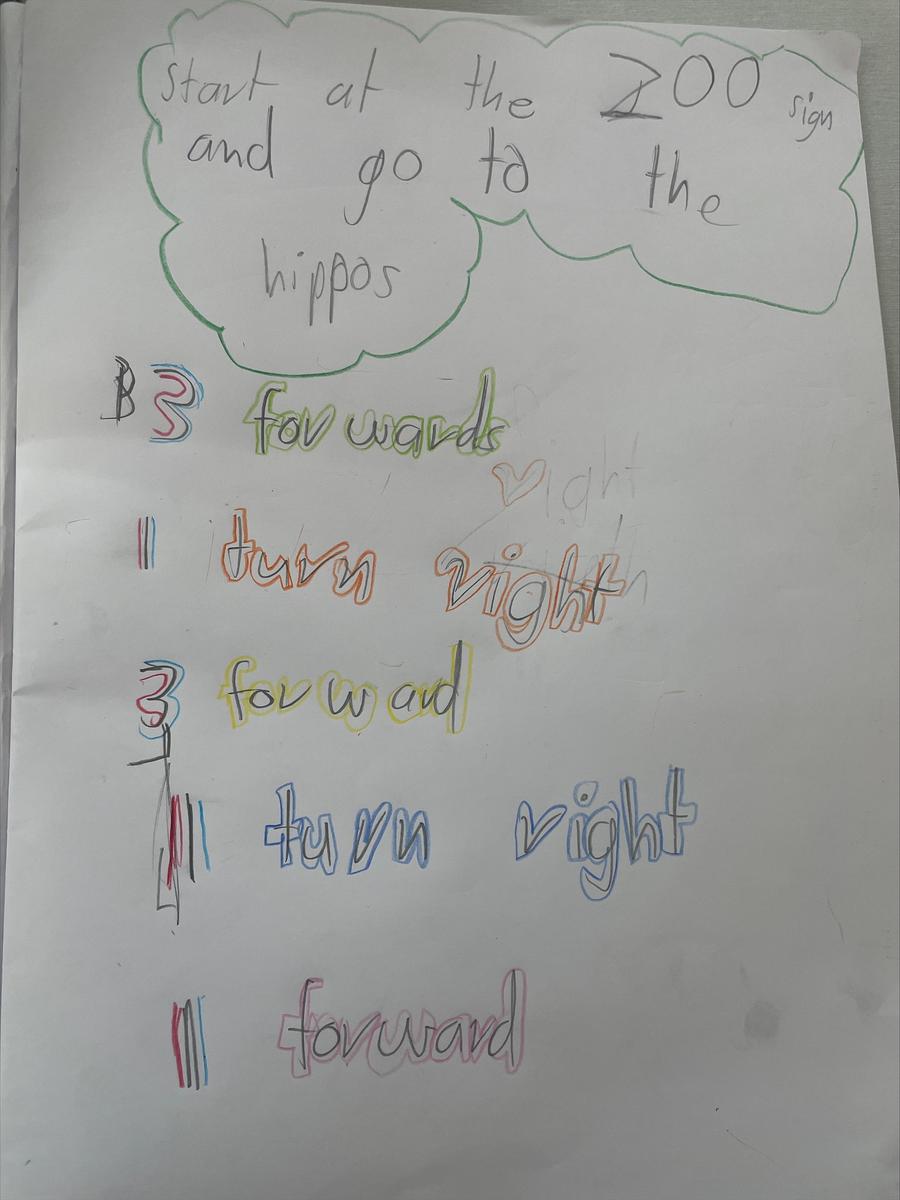 start at the ZOO sign
and go to the
hippos
3 forwards
right
1 turn right
3 forward
1 turn right
1 forward